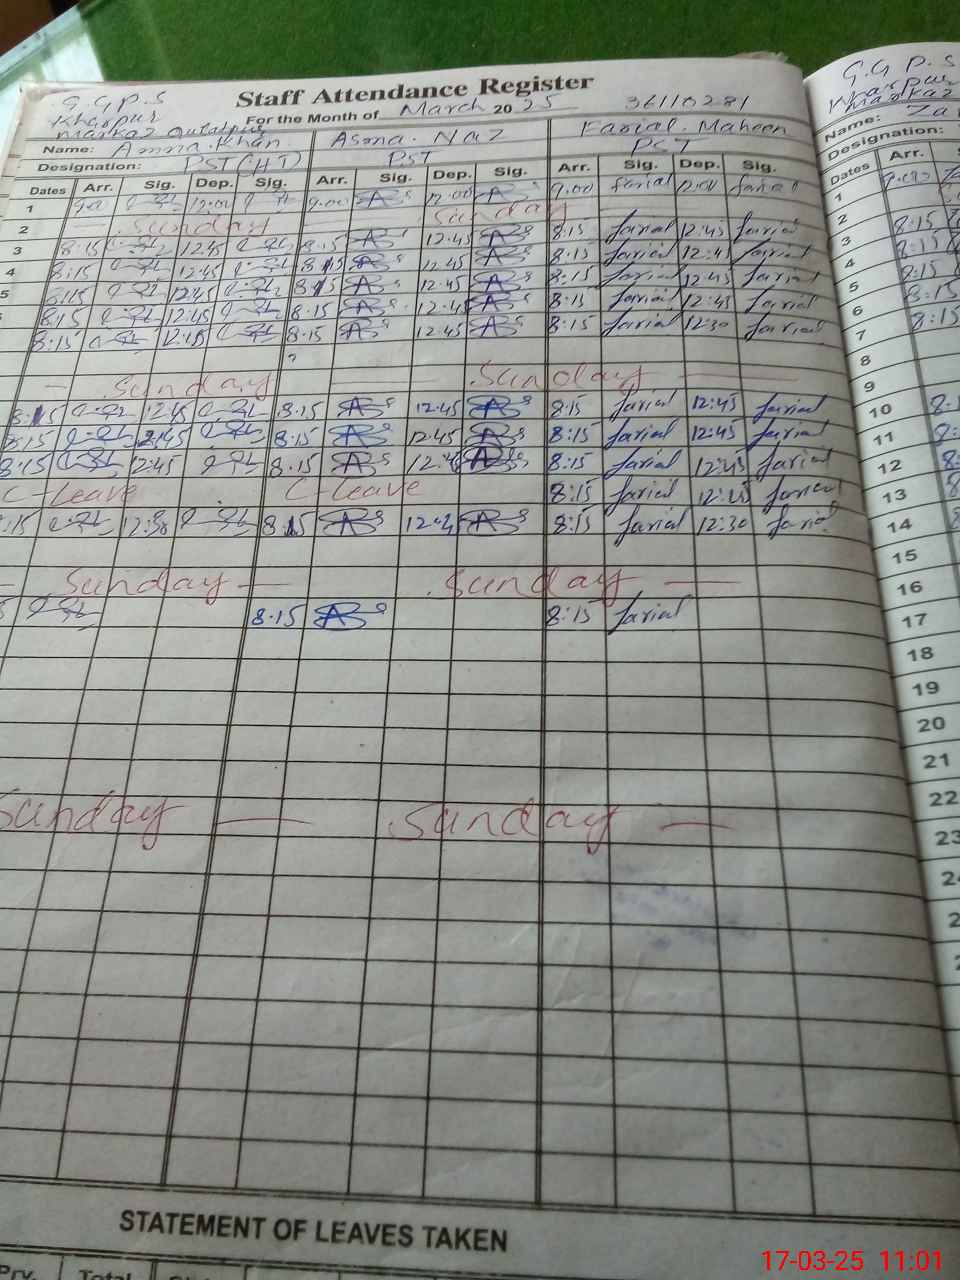 G.G P.S
Kharpur
Markaz Qutabpur
Staff Attendance Register
For the Month of March 2025
36110281
Name: Amna.Khan Asma.Naz Farial.Maheen
Designation: PST(HT) PST PST
Dates Arr. Sig. Dep. Sig. Arr. Sig. Dep. Sig. Arr. Sig. Dep. Sig.
1 9.00 12.00 9.00 A 12.00 A 9.00 farial 12:00 farial
2 Sunday Sunday
3 8:15 12.45 8.15 A 12.45 A 8:15 farial 12:45 farial
4 8:15 12.45 8.15 A 12.45 A 8:15 farial 12:45 farial
5 8:15 12.45 8.15 A 12.45 A 8:15 farial 12:45 farial
8:15 12.45 8.15 A 12.45 A 8:15 farial 12:45 farial
8:15 8.15 A 12.45 A 8:15 farial 12:30 farial
Sunday Sunday
8:15 8.15 A 12.45 A 8:15 farial 12:45 farial
8:15 8.15 A 12.45 A 8:15 farial 12:45 farial
8:15 12:45 8.15 A A 8:15 farial 12:45 farial
C-Leave C-Leave 8:15 farial farial
:15 12:30 8.15 A A 8:15 farial 12:30 farial
Sunday Sunday
8.15 A 8:15 farial
Sunday Sunday
STATEMENT OF LEAVES TAKEN
Prv. Total
G.G P.S
Kharpur
Markaz
Name: Za
Designation:
Dates Arr.
1 9.00
2
3 8:15
4 8:15
5 8:15
6 8:15
7 8:15
8
9
10 8:
11 8:
12 8:
13 8
14
15
16
17
18
19
20
21
22
23
2
2
17-03-25 11:01